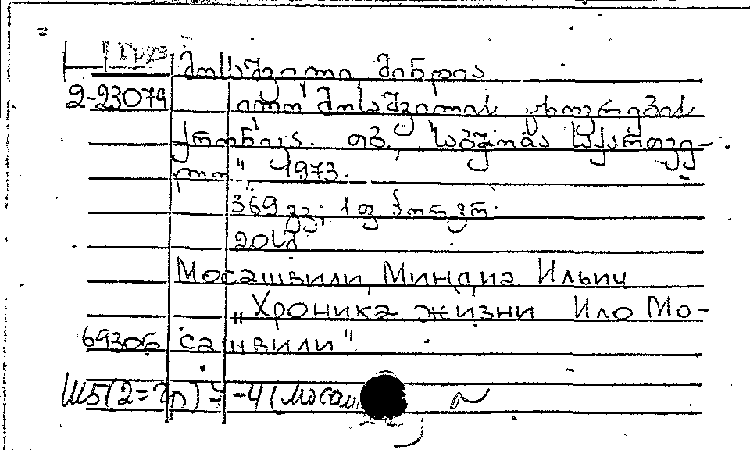 Груз
მოსაშვილი მინდია
2-23079 ილო მოსაშვილის ცხოვრების
ქრონიკა. თბ., "საბჭოთა საქართვე-
ლო", 1973.
369 გვ; 1 ფ. პორტრ.
Мосашвили Миндиа Ильич
„Хроника жизни Ило Мо-
69306 сашвили".
Ш5(2=Гр) -4 (Мосаш